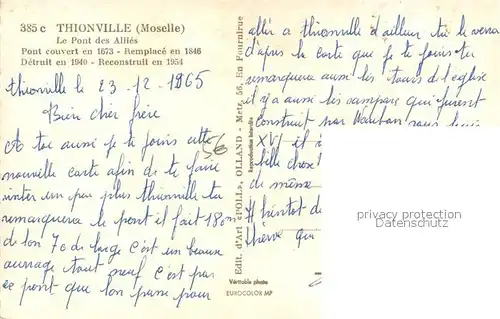 385 c THIONVILLE (Moselle)
Le Pont des Alliés
Pont couvert en 1673 - Remplacé en 1846
Détruit en 1940 - Reconstruit en 1954
Thionville le 23-12-1965
Bien cher frère
A toi aussi je te joins cette
nouvelle carte afin de te faire
un peu plus thionville tu
remarquera le pont il fait 180m
de lon 7c de large c'est un beaux
ouvrage tout neuf c'est par
ce pont que lon passe pour
Edit. d'Art «ROLL», OLLAND - Metz, 56, En Fournirue
Reproduction interdite
Véritable photo
EUROCOLOR MP
allér a thionville d'ailleur tu le verra
d'après la carte que je te joins tu
remarquera aussi les tours de l'eglise
il y a aussi les rampars qui furent
construit par Vauban sous
XVI il
chose
de même
A bientôt
qui
privacy protection
Datenschutz